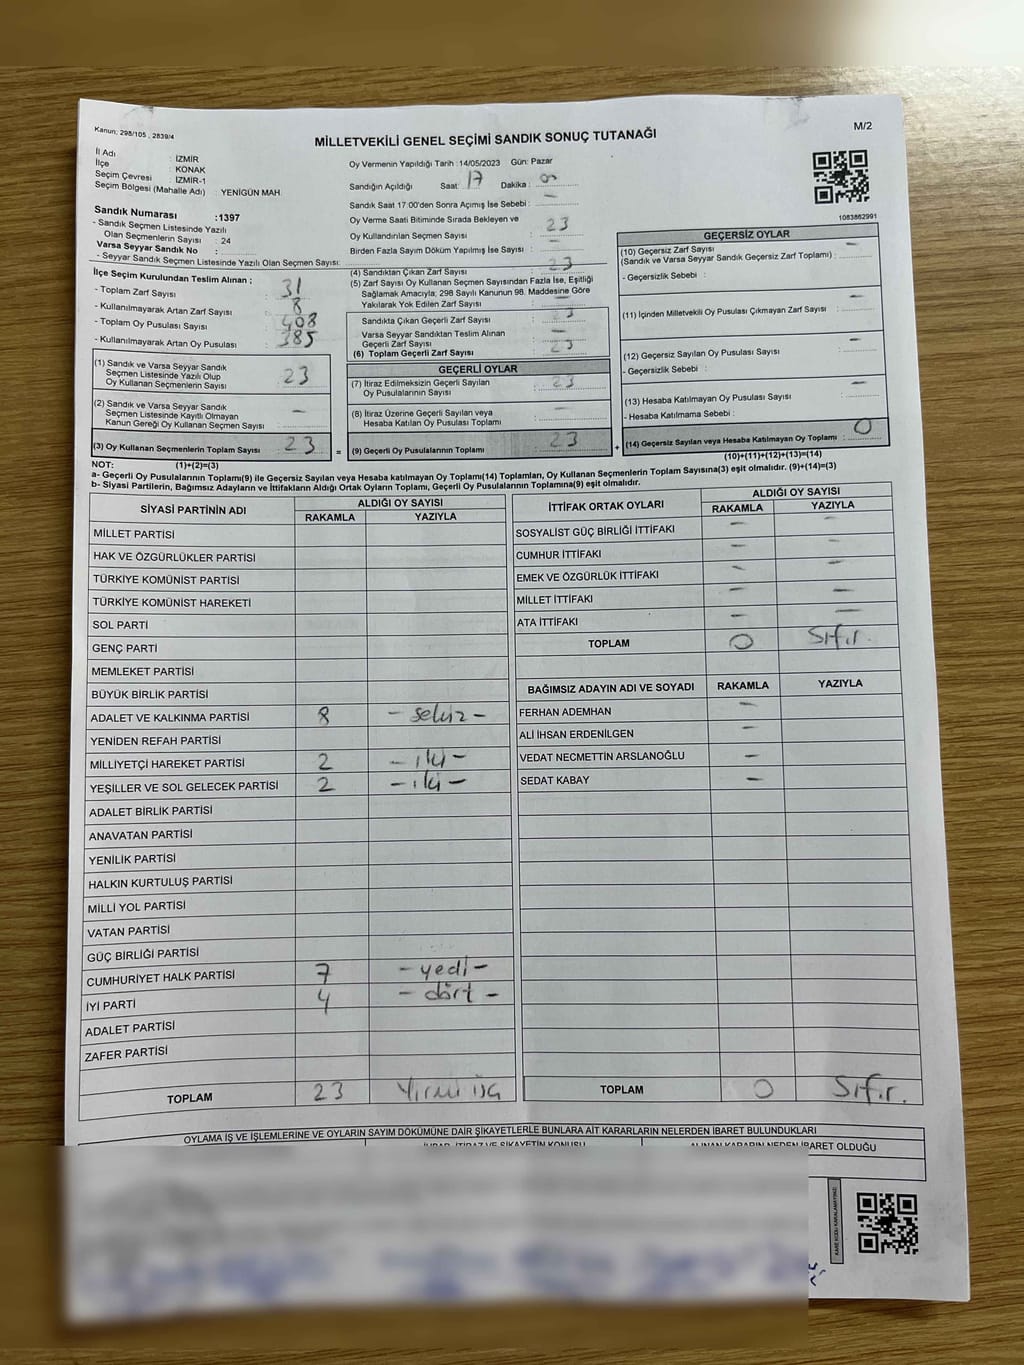 Kanun; 298/105 , 2839/4
MİLLETVEKİLİ GENEL SEÇİMİ SANDIK SONUÇ TUTANAĞI
M/2
İl Adı : İZMİR
İlçe : KONAK
Seçim Çevresi : İZMİR-1
Seçim Bölgesi (Mahalle Adı) : YENİGÜN MAH
Sandık Numarası :1397
- Sandık Seçmen Listesinde Yazılı
Olan Seçmenlerin Sayısı : 24
Varsa Seyyar Sandık No :
- Seyyar Sandık Seçmen Listesinde Yazılı Olan Seçmen Sayısı:
Oy Vermenin Yapıldığı Tarih :14/05/2023 Gün: Pazar
Sandığın Açıldığı Saat: 17 Dakika :
Sandık Saat 17.00'den Sonra Açımış İse Sebebi : -
Oy Verme Saati Bitiminde Sırada Bekleyen ve
Oy Kullandırılan Seçmen Sayısı : 23
Birden Fazla Sayım Döküm Yapılmış İse Sayısı : -
1083862991
İlçe Seçim Kurulundan Teslim Alınan ;
- Toplam Zarf Sayısı : 31
- Kullanılmayarak Artan Zarf Sayısı : 8
- Toplam Oy Pusulası Sayısı : 408
- Kullanılmayarak Artan Oy Pusulası : 385
(1) Sandık ve Varsa Seyyar Sandık
Seçmen Listesinde Yazılı Olup
Oy Kullanan Seçmenlerin Sayısı : 23
(2) Sandık ve Varsa Seyyar Sandık
Seçmen Listesinde Kayıtlı Olmayan
Kanun Gereği Oy Kullanan Seçmen Sayısı : -
(3) Oy Kullanan Seçmenlerin Toplam Sayısı : 23
(4) Sandıktan Çıkan Zarf Sayısı : 23
(5) Zarf Sayısı Oy Kullanan Seçmen Sayısından Fazla İse, Eşitliği
Sağlamak Amacıyla; 298 Sayılı Kanunun 98. Maddesine Göre
Yakılarak Yok Edilen Zarf Sayısı : -
Sandıkta Çıkan Geçerli Zarf Sayısı :
Varsa Seyyar Sandıktan Teslim Alınan
Geçerli Zarf Sayısı : -
(6) Toplam Geçerli Zarf Sayısı : 23
GEÇERLİ OYLAR
(7) İtiraz Edilmeksizin Geçerli Sayılan
Oy Pusulalarının Sayısı : 23
(8) İtiraz Üzerine Geçerli Sayılan veya
Hesaba Katılan Oy Pusulası Toplamı : -
= (9) Geçerli Oy Pusulalarının Toplamı : 23
GEÇERSİZ OYLAR
(10) Geçersiz Zarf Sayısı
(Sandık ve Varsa Seyyar Sandık Geçersiz Zarf Toplamı) : -
- Geçersizlik Sebebi :
(11) İçinden Milletvekili Oy Pusulası Çıkmayan Zarf Sayısı : -
(12) Geçersiz Sayılan Oy Pusulası Sayısı : -
- Geçersizlik Sebebi :
(13) Hesaba Katılmayan Oy Pusulası Sayısı : -
- Hesaba Katılmama Sebebi :
+ (14) Geçersiz Sayılan veya Hesaba Katılmayan Oy Toplamı : 0
NOT: (1)+(2)=(3)
(10)+(11)+(12)+(13)=(14)
a- Geçerli Oy Pusulalarının Toplamı(9) ile Geçersiz Sayılan veya Hesaba katılmayan Oy Toplamı(14) Toplamları, Oy Kullanan Seçmenlerin Toplam Sayısına(3) eşit olmalıdır. (9)+(14)=(3)
b- Siyasi Partilerin, Bağımsız Adayların ve İttifakların Aldığı Ortak Oyların Toplamı, Geçerli Oy Pusulalarının Toplamına(9) eşit olmalıdır.
SİYASİ PARTİNİN ADI ALDIĞI OY SAYISI
RAKAMLA YAZIYLA
MİLLET PARTİSİ
HAK VE ÖZGÜRLÜKLER PARTİSİ
TÜRKİYE KOMÜNİST PARTİSİ
TÜRKİYE KOMÜNİST HAREKETİ
SOL PARTİ
GENÇ PARTİ
MEMLEKET PARTİSİ
BÜYÜK BİRLİK PARTİSİ
ADALET VE KALKINMA PARTİSİ 8 - sekiz -
YENİDEN REFAH PARTİSİ
MİLLİYETÇİ HAREKET PARTİSİ 2 - iki -
YEŞİLLER VE SOL GELECEK PARTİSİ 2 - iki -
ADALET BİRLİK PARTİSİ
ANAVATAN PARTİSİ
YENİLİK PARTİSİ
HALKIN KURTULUŞ PARTİSİ
MİLLİ YOL PARTİSİ
VATAN PARTİSİ
GÜÇ BİRLİĞİ PARTİSİ
CUMHURİYET HALK PARTİSİ 7 - yedi -
İYİ PARTİ 4 - dört -
ADALET PARTİSİ
ZAFER PARTİSİ
TOPLAM 23 Yirmi üç
İTTİFAK ORTAK OYLARI ALDIĞI OY SAYISI
RAKAMLA YAZIYLA
SOSYALİST GÜÇ BİRLİĞİ İTTİFAKI - -
CUMHUR İTTİFAKI - -
EMEK VE ÖZGÜRLÜK İTTİFAKI - -
MİLLET İTTİFAKI - -
ATA İTTİFAKI - -
TOPLAM 0 Sıfır.
BAĞIMSIZ ADAYIN ADI VE SOYADI RAKAMLA YAZIYLA
FERHAN ADEMHAN -
ALİ İHSAN ERDENİLGEN -
VEDAT NECMETTİN ARSLANOĞLU -
SEDAT KABAY -
TOPLAM 0 Sıfır.
OYLAMA İŞ VE İŞLEMLERİNE VE OYLARIN SAYIM DÖKÜMÜNE DAİR ŞİKAYETLERLE BUNLARA AİT KARARLARIN NELERDEN İBARET BULUNDUKLARI
İHBAR, İTİRAZ VE ŞİKAYETİN KONUSU ALINAN KARARIN NEDEN İBARET OLDUĞU